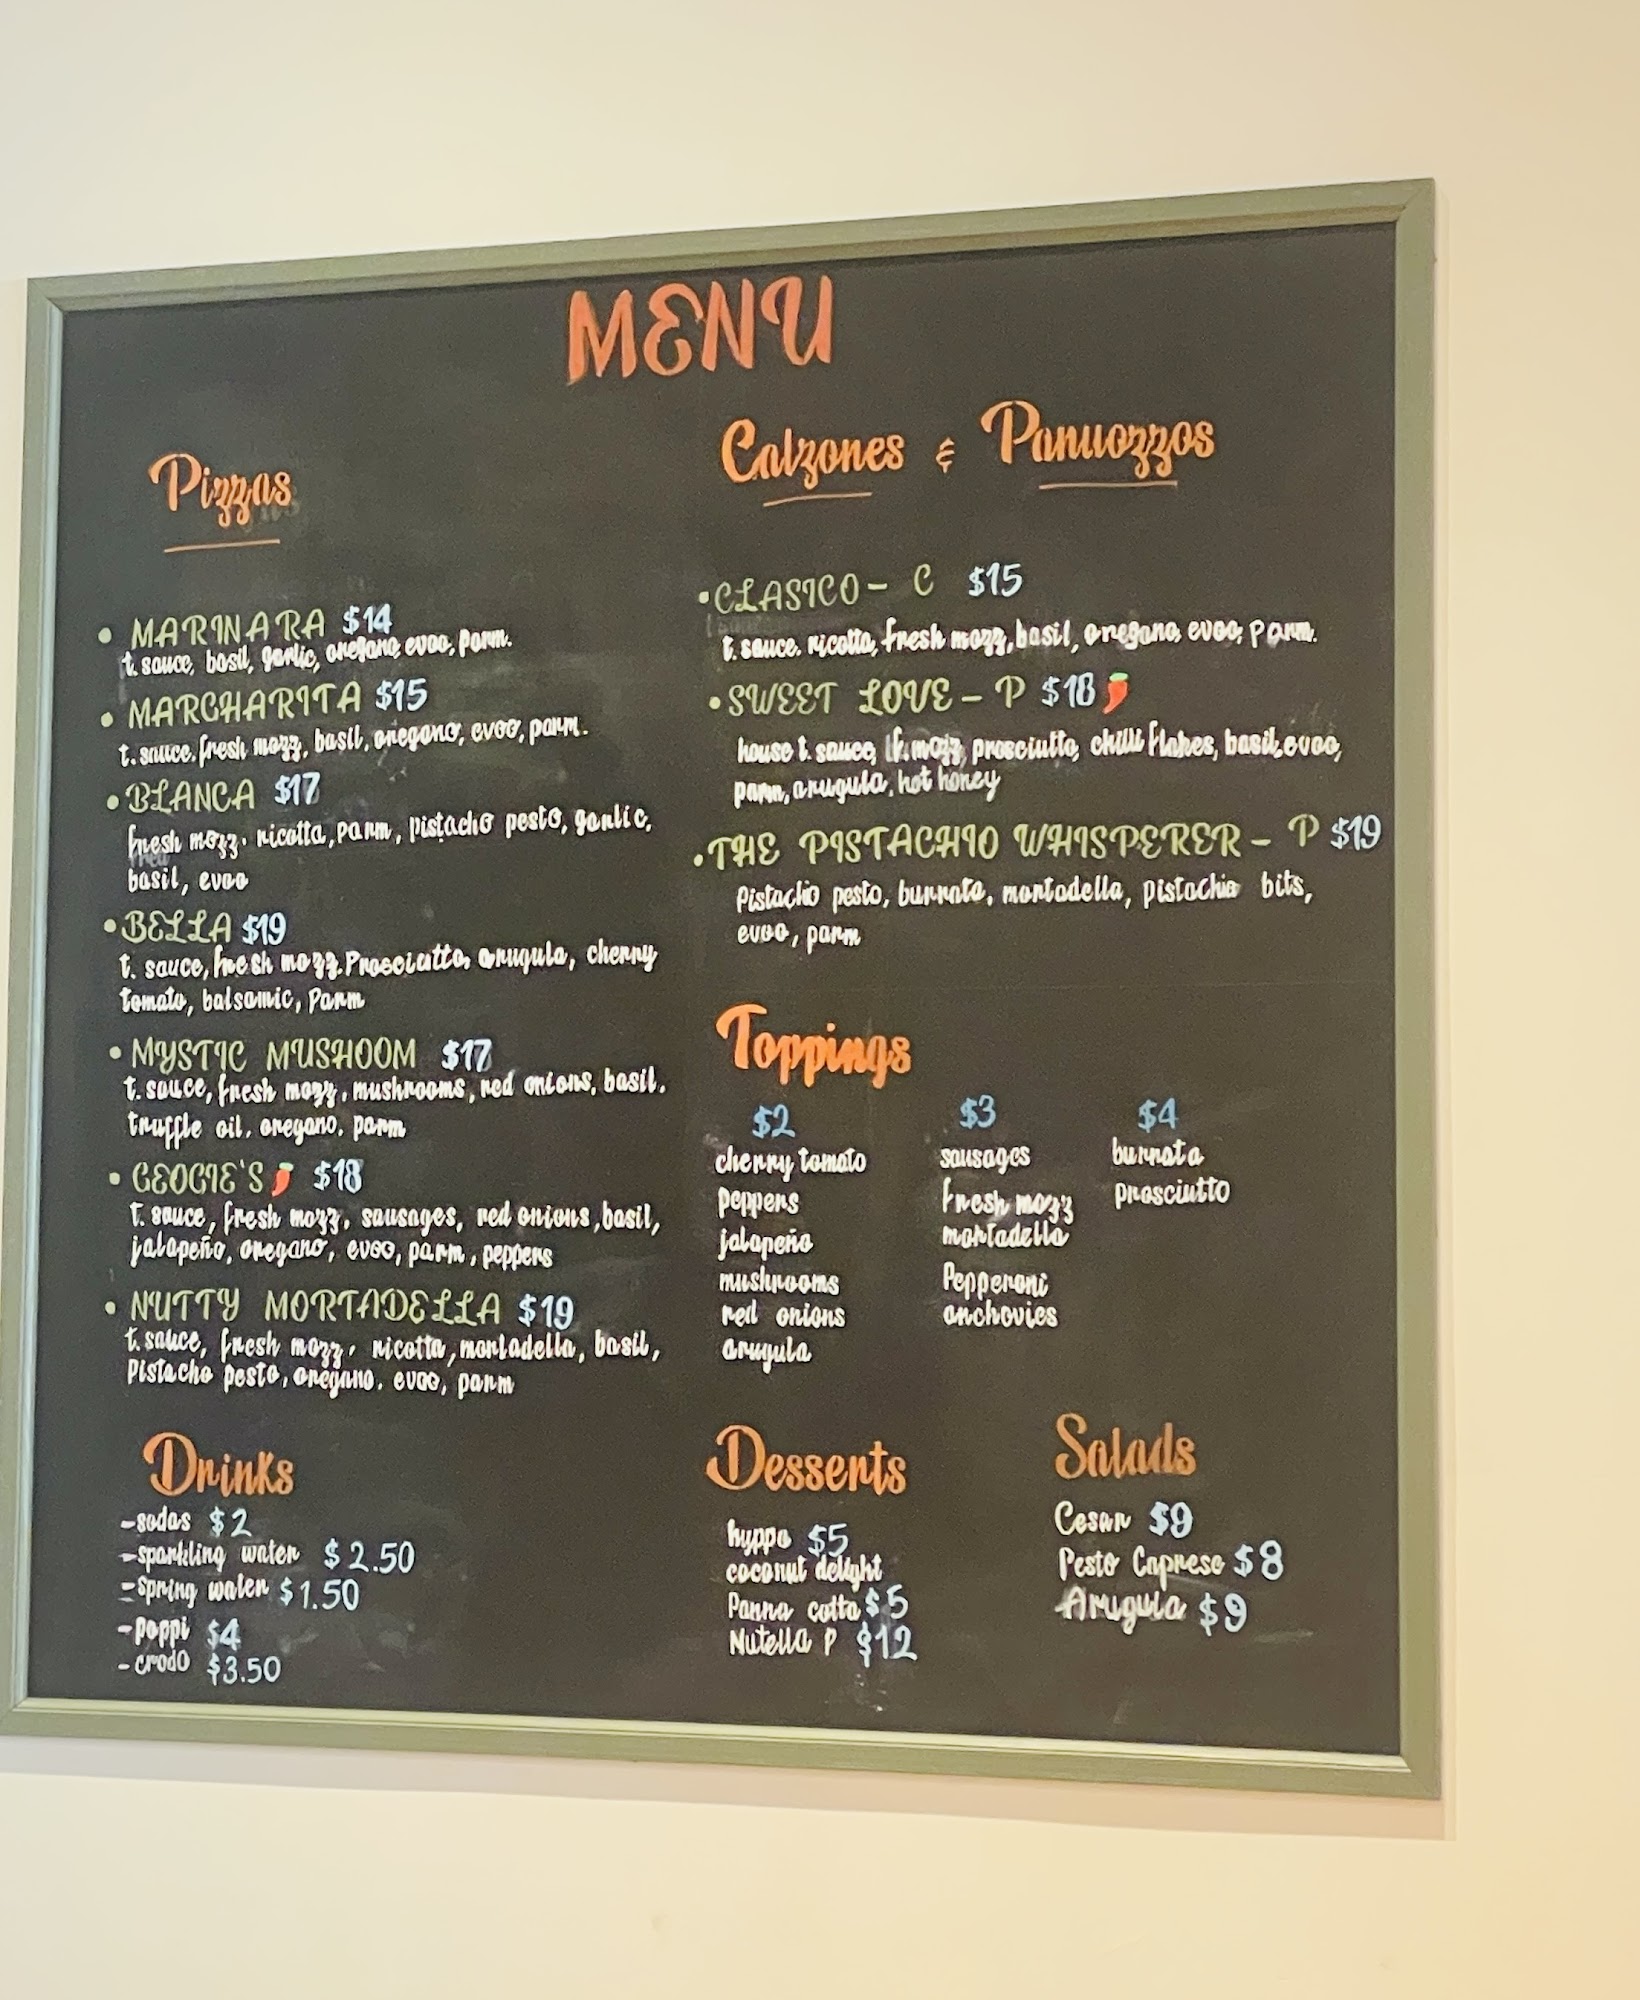 MENU
Pizzas
• MARINARA $14
t. sauce, basil, garlic, oregano, evoo, parm.
• MARGHARITA $15
t. sauce, fresh mozz, basil, oregano, evoo, parm.
• BLANCA $17
fresh mozz, ricotta, parm, pistacho pesto, garlic,
basil, evoo
• BELLA $19
t. sauce, fresh mozz, Prosciutto, arugula, cherry
tomato, balsamic, parm
• MYSTIC MUSHOOM $17
t. sauce, fresh mozz, mushrooms, red onions, basil,
truffle oil, oregano, parm
• GEOGIE'S $18
t. sauce, fresh mozz, sausages, red onions, basil,
jalapeño, oregano, evoo, parm, peppers
• NUTTY MORTADELLA $19
t. sauce, fresh mozz, ricotta, mortadella, basil,
Pistacho pesto, oregano, evoo, parm
Calzones & Panuozzos
• CLASICO - C $15
t. sauce. ricotta, fresh mozz, basil, oregano, evoo, parm.
• SWEET LOVE - P $18
house t. sauce, f. mozz, prosciutto, chilli flakes, basil, evoo,
parm, arugula, hot honey
• THE PISTACHIO WHISPERER - P $19
Pistachio pesto, burrata, mortadella, pistachio bits,
evoo, parm
Toppings
$2
cherry tomato
peppers
jalapeño
mushrooms
red onions
arugula
$3
sausages
fresh mozz
mortadella
Pepperoni
anchovies
$4
burrata
prosciutto
Drinks
- sodas $2
- sparkling water $2.50
- spring water $1.50
- poppi $4
- crodo $3.50
Desserts
hyppo $5
coconut delight
Panna cotta $5
Nutella P $12
Salads
Cesar $9
Pesto Caprese $8
Arugula $9